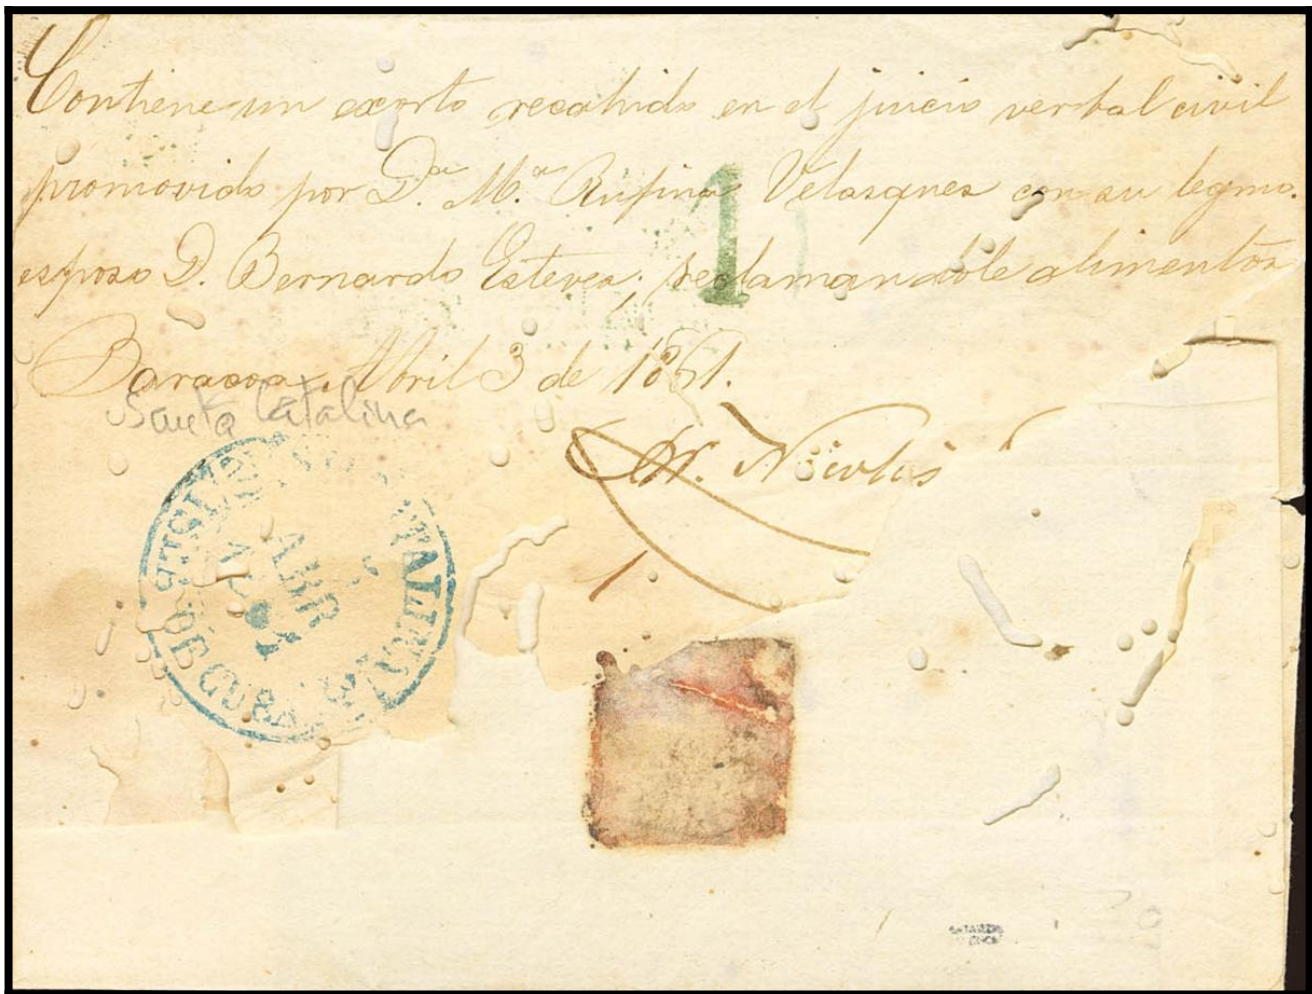 Contiene un exorto recahido en el juicio verbal civil
promovido por D.ª M.ª Rufina Velasques con su legmo.
esposo D. Bernardo Estevez, reclamandole alimentos
Baracoa, Abril 3 de 1861.
1
Santa Catalina
N. Nicolás
ABR
DE CUBA